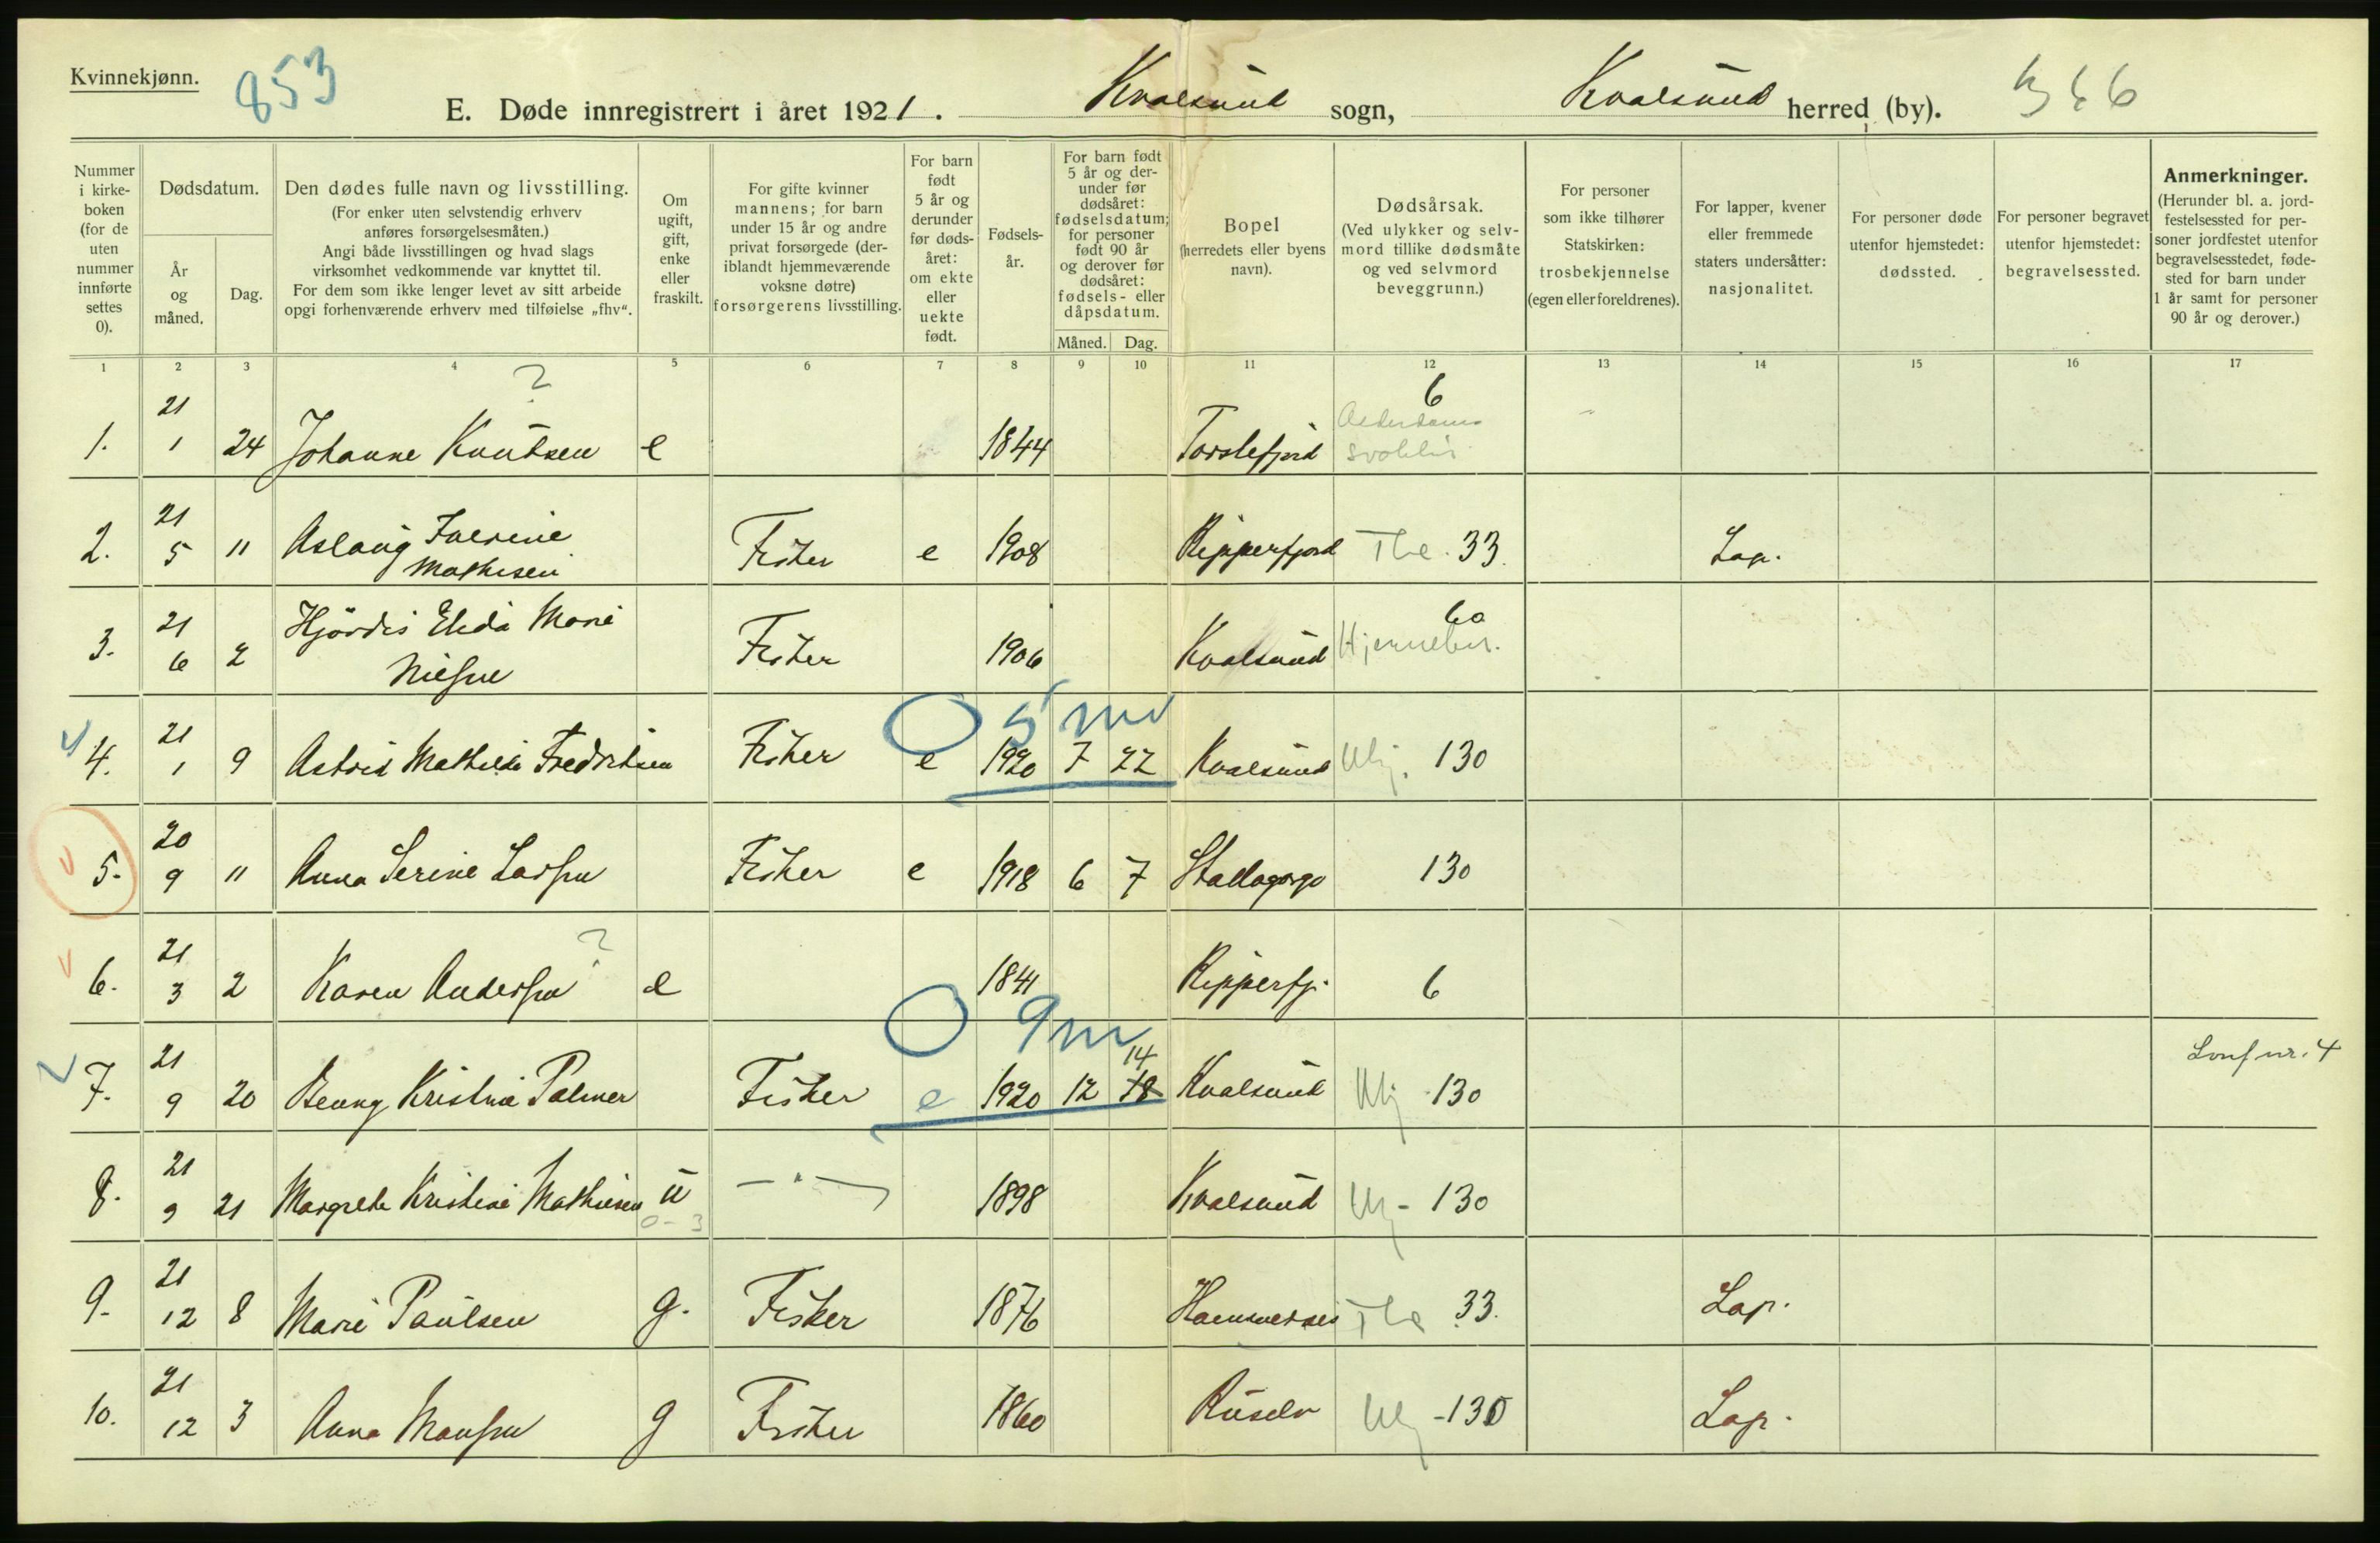 Kvinnekjønn.
853
E. Døde innregistrert i året 1921. Kvalsund sogn, Kvalsund herred (by).
Nummer i kirke-boken (for de uten nummer innførte settes 0).
Dødsdatum.
År og måned.
Dag.
Den dødes fulle navn og livsstilling.
(For enker uten selvstendig erhverv anføres forsørgelsesmåten.)
Angi både livsstillingen og hvad slags virksomhet vedkommende var knyttet til.
For dem som ikke lenger levet av sitt arbeide opgi forhenværende erhverv med tilføielse „fhv“.
Om ugift, gift, enke eller fraskilt.
For gifte kvinner mannens; for barn under 15 år og andre privat forsørgede (der-iblandt hjemmeværende voksne døtre) forsørgerens livsstilling.
For barn født 5 år og derunder før døds-året: om ekte eller uekte født.
Fødsels-år.
For barn født 5 år og der-under før dødsåret: fødselsdatum; for personer født 90 år og derover før dødsåret: fødsels- eller dåpsdatum.
Måned. Dag.
Bopel
(herredets eller byens navn).
Dødsårsak.
(Ved ulykker og selv-mord tillike dødsmåte og ved selvmord beveggrunn.)
For personer som ikke tilhører Statskirken: trosbekjennelse (egen eller foreldrenes).
For lapper, kvener eller fremmede staters undersåtter: nasjonalitet.
For personer døde utenfor hjemstedet: dødssted.
For personer begravet utenfor hjemstedet: begravelsessted.
Anmerkninger.
(Herunder bl. a. jord-festelsessted for per-soner jordfestet utenfor begravelsesstedet, føde-sted for barn under 1 år samt for personer 90 år og derover.)
1 2 3 4 5 6 7 8 9 10 11 12 13 14 15 16 17
1. 21 1 24 Johanne Knutsen ? e 1844 Torslefjord 6
2. 21 5 11 Aslaug Mathisen Fisker e 1908 Ripperfjord Tbc. 33. Lap.
3. 21 6 2 Hjördis Elida Marie Nilsen Fisker 1906 Kvalsund Hjernebet. 60
0 5 md
4. 21 1 9 Astrid Mathilde Fredriksen Fisker e 1920 7 22 Kvalsund Ulj. 130
5. 20 9 11 Anna Serine Larsen Fisker e 1918 6 7 Stallogargo 130
6. 21 3 2 Karen Andersen ? e 1841 Ripperfj. 6
0 9 m
7. 21 9 20 Kristine Palmer Fisker e 1920 12 18 14 Kvalsund Ulj 130
8. 21 9 21 Margrethe Kristine Mathisen u 0-3 — " — 1898 Kvalsund Ulj - 130
9. 21 12 8 Marie Paulsen g. Fisker 1876 Tbc 33. Lap.
10. 21 12 3 Anna Monsen g Fisker 1860 Ruselv Ulj -130 Lap.